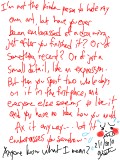 I'm not the kinda person to hate my
own art, but have you ever
been embarrassed of a drawing
just after you finished it? Or of
something recent? Or of just a
small detail, like an expression?
But then you spent too
on it in the first place, and
everyone else seems to like it
and you have no idea how you would
fix it anyway.. but it still
embarrasses you somehow?
Anyone know what I mean?